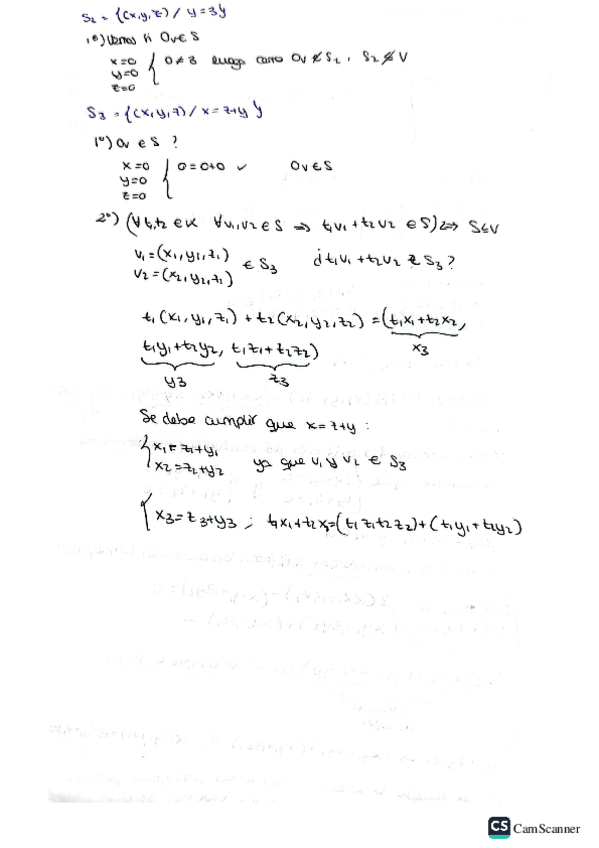 S₂ = {(x,y,z) / y=3}
1º) Vemos si Ov∈S
x=0
y=0
z=0
0≠3 luego como Ov∉S₂, S₂≰V
S₃ = {(x,y,z) / x=z+y}
1º) Ov∈S ?
x=0
y=0
z=0
0=0+0 ✓ Ov∈S
2º) (∀t₁,t₂∈K ∀v₁,v₂∈S ⇒ t₁v₁+t₂v₂ ∈S) ⇔ S≤V
v₁=(x₁,y₁,z₁)
v₂=(x₂,y₂,z₂)
∈ S₃ ¿t₁v₁+t₂v₂ ∈ S₃?
t₁(x₁,y₁,z₁) + t₂(x₂,y₂,z₂) = (t₁x₁+t₂x₂,
x₃
t₁y₁+t₂y₂, t₁z₁+t₂z₂)
y₃ z₃
Se debe cumplir que x=z+y :
x₁=z₁+y₁
x₂=z₂+y₂
ya que v₁ y v₂ ∈ S₃
x₃=z₃+y₃ ; t₁x₁+t₂x₂=(t₁z₁t₂z₂)+(t₁y₁+t₂y₂)
CS CamScanner